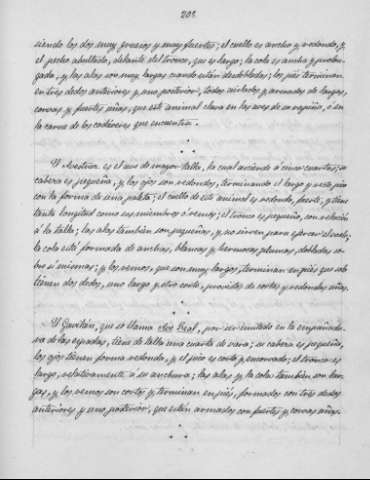 202
siendo los dos muy gruesos y muy fuertes; el cuello es ancho y redondo, y
el pecho abultado, delante del tronco, que es largo; la cola es ancha y
gada, y las alas son muy largas cuando están desdobladas; los piés terminan
en tres dedos anteriores y uno posterior, todos aislados y armados de largas,
corvas y fuertes uñas, que este animal clava en las aves de su rapiña, ó en
la carne de los cadáveres que encuentra.
El Avestruz es el ave de mayor talla, la cual asciende á cinco cuartas; su
cabeza es pequeña, y los ojos son redondos, terminando el largo y recto pico
con la forma de una paleta; el cuello de este animal es redondo, fuerte, y tiene
tanta longitud como sus miembros ó remos; el tronco es pequeño, con relación
á la talla; las alas también son pequeñas, y no sirven para ejercer el vuelo;
la cola está formada de anchas, blancas y hermosas plumas, dobladas so-
bre sí mismas; y los remos, que son muy largos, terminan en piés que solo
tienen dos dedos, uno largo y otro corto, provistos de cortas y redondas uñas.
El Gavilán, que se llama Ave Real, por ser imitado en la empuñadu-
ra de las espadas, tiene de talla una cuarta de vara; su cabeza es pequeña,
los ojos tienen forma redonda, y el pico es corto y encorvado; el tronco es
largo, relativamente á su anchura; las alas y la cola también son lar-
gas, y los remos son cortos y terminan en piés, formados con tres dedos
anteriores y uno posterior, que están armados con fuertes y corvas uñas.